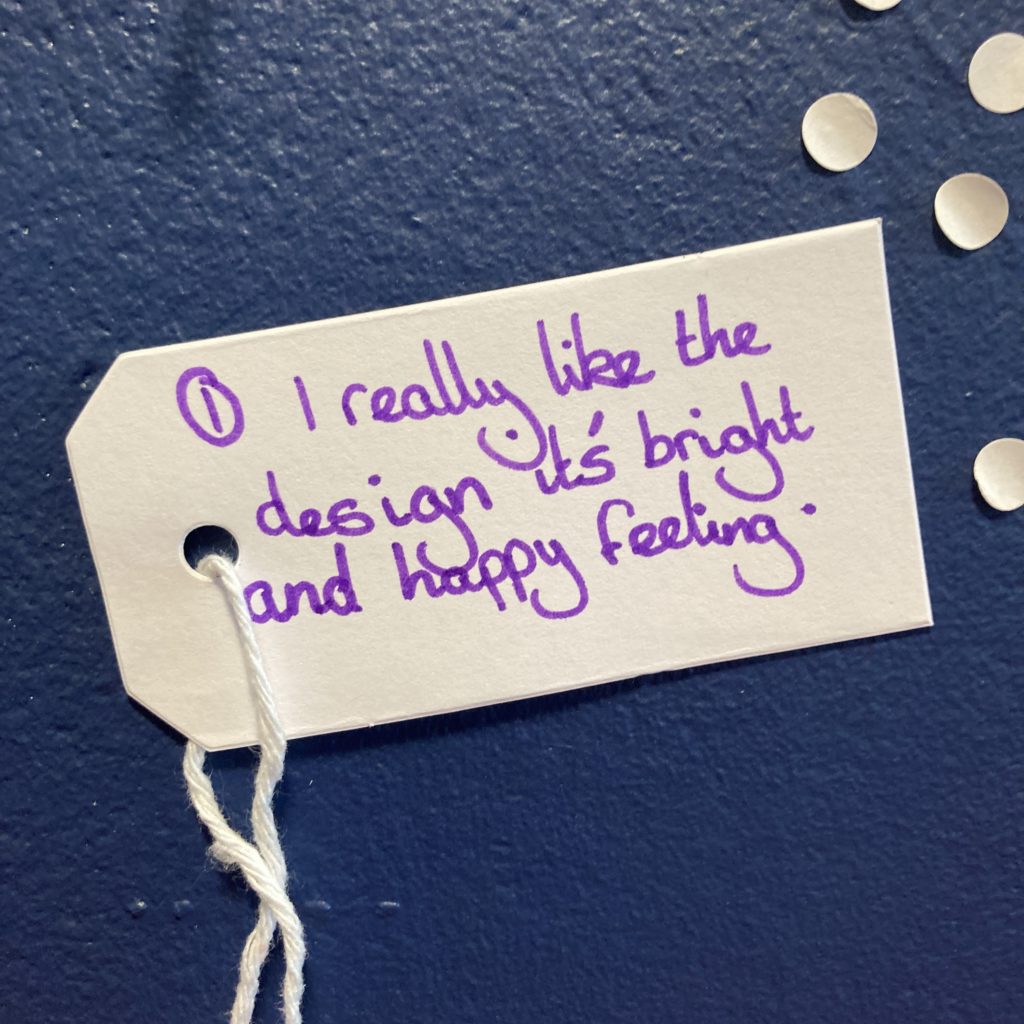 ① I really like the
design it's bright
and happy feeling.